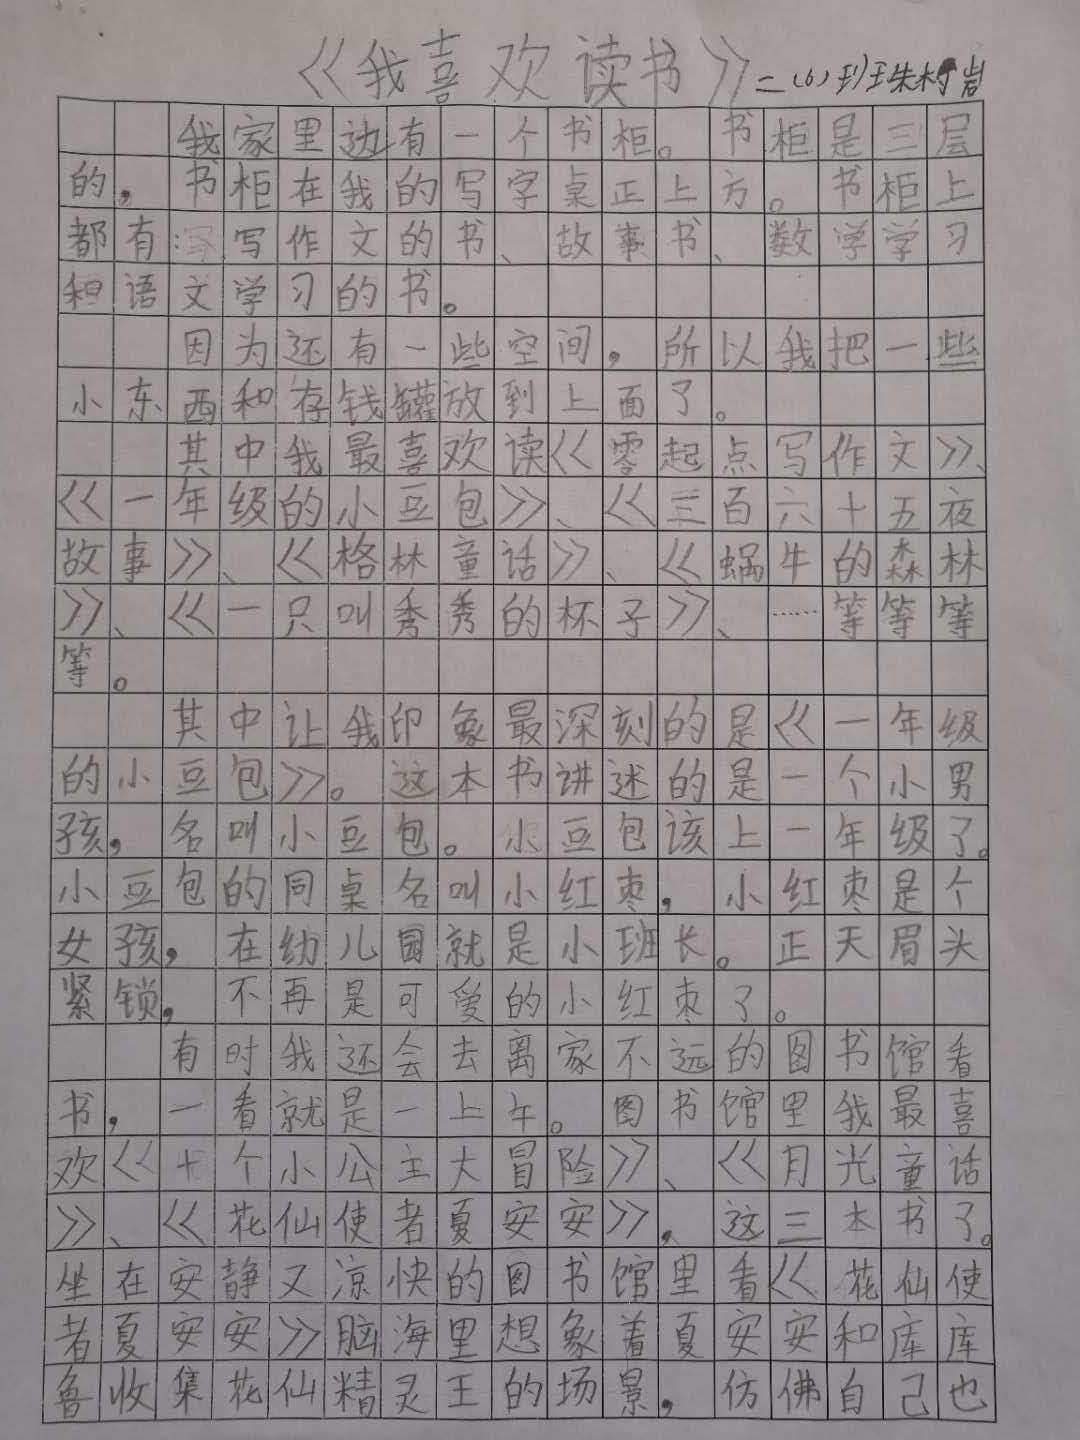 《我喜欢读书》二（6）班珠村岩
我家里边有一个书柜。书柜是三层
的，书柜在我的写字桌正上方。书柜上
都有写作文的书、故事书、数学学习
和语文学习的书。
因为还有一些空间，所以我把一些
小东西和存钱罐放到上面了。
其中我最喜欢读《零起点写作文》、
《一年级的小豆包》、《三百六十五夜
故事》、《格林童话》、《蜗牛的森林
》、《一只叫秀秀的杯子》、……等等等
等。
其中让我印象最深刻的是《一年级
的小豆包》。这本书讲述的是一个小男
孩，名叫小豆包。小豆包该上一年级了。
小豆包的同桌名叫小红枣，小红枣是个
女孩，在幼儿园就是小班长。正天眉头
紧锁，不再是可爱的小红枣了。
有时我还会去离家不远的图书馆看
书，一看就是一上午。图书馆里我最喜
欢《十个小公主大冒险》、《月光童话
》、《花仙使者夏安安》，这三本书了。
坐在安静又凉快的图书馆里看《花仙使
者夏安安》脑海里想象着夏安安和库库
鲁收集花仙精灵王的场景，仿佛自己也